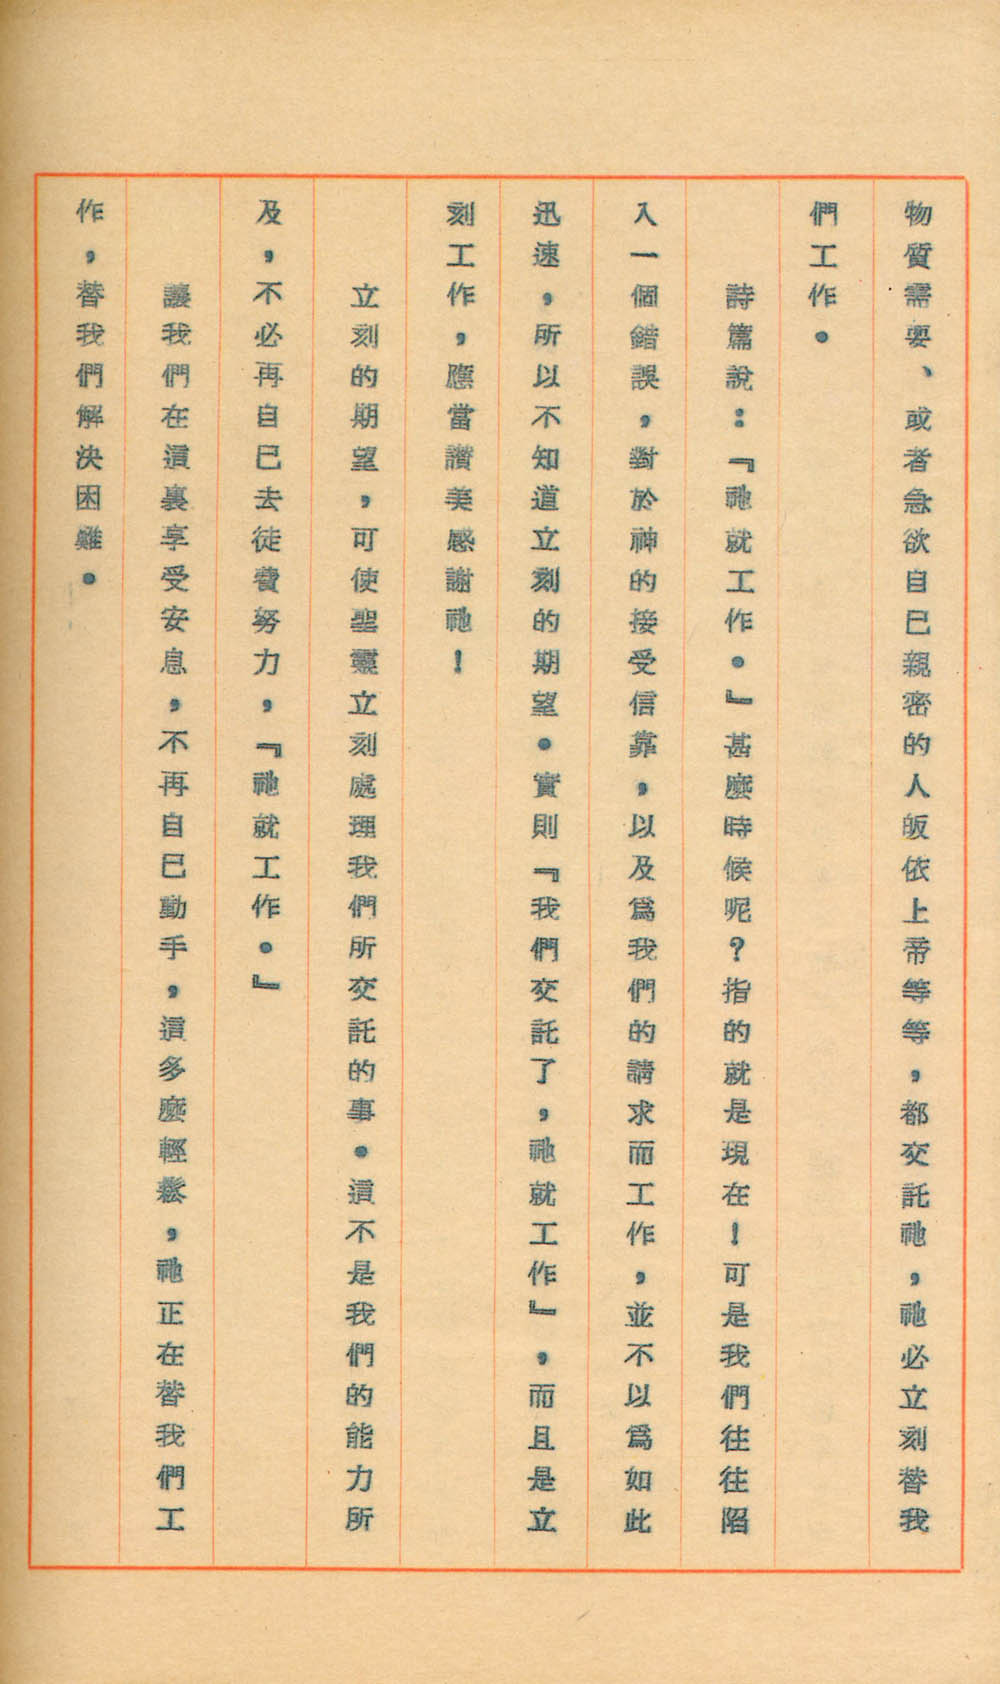 物質需要、或者急欲自己親密的人皈依上帝等等，都交託祂，祂必立刻替我
們工作。
詩篇說：『祂就工作。』甚麼時候呢？指的就是現在！可是我們往往陷
入一個錯誤，對於神的接受信靠，以及爲我們的請求而工作，並不以爲如此
迅速，所以不知道立刻的期望。實則『我們交託了，祂就工作』，而且是立
刻工作，應當讚美感謝祂！
立刻的期望，可使聖靈立刻處理我們所交託的事。這不是我們的能力所
及，不必再自己去徒費努力，『祂就工作。』
讓我們在這裏享受安息，不再自己動手，這多麼輕鬆，祂正在替我們工
作，替我們解決困難。